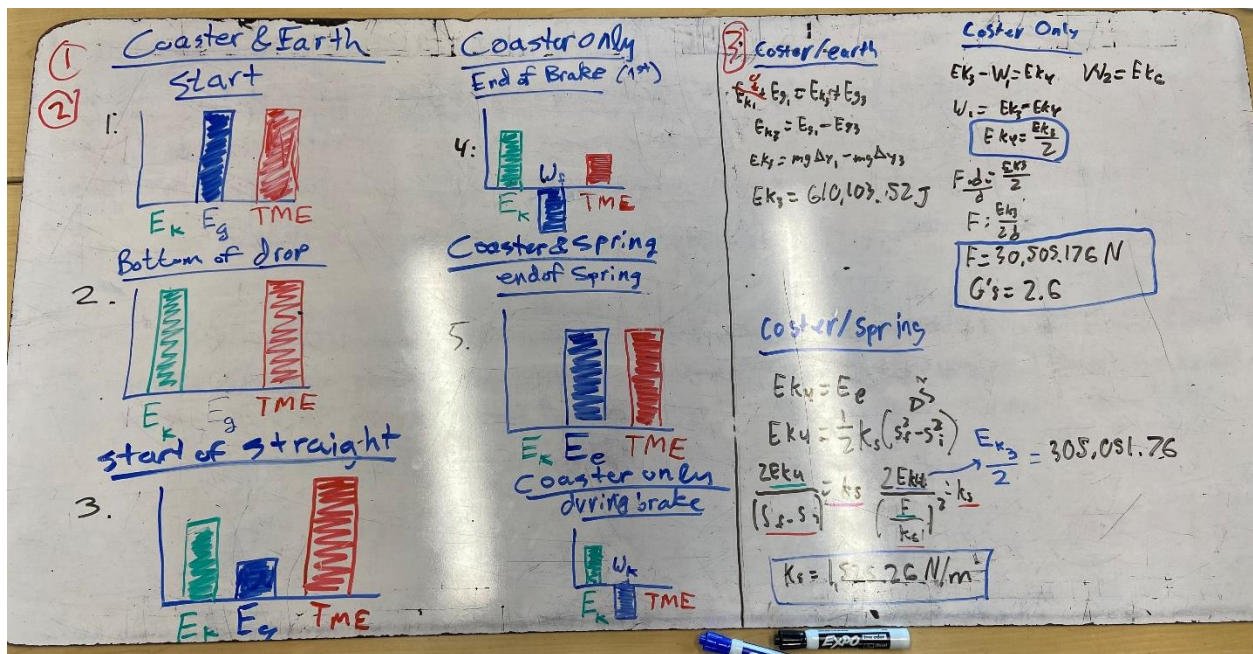 ①
②
Coaster & Earth
Start
1.
Ek Eg TME
Bottom of drop
2.
Ek Eg TME
Start of Straight
3.
Ek Eg TME
Coaster only
End of Brake (1st)
4:
Ek Wf TME
Coaster & Spring
end of Spring
5.
Ek Ee TME
Coaster only
during brake
Ek Wk TME
3.
Coster/earth
Eg₁ = Ek₃ + Eg₃
Ek₃ = Eg₁ - Eg₃
Ek₃ = mgΔy₁ - mgΔy₃
Ek₃ = 610,103.52 J
Coster Only
Ek₃ - W₁ = Ek₄ W₂ = Ek₆
W₁ = Ek₃ - Ek₄
Ek₄ = Ek₃/2
F·d/d = Ek₃/2
F: Ek₃/2d
F = 30,505.176 N
G's = 2.6
Coster/Spring
Ek₄ = Ee
Ek₄ = 1/2 ks (sf² - si²)
2Ek₄/(sf - si) = ks 2Ek₄/(F/ks)² = ks Ek₃/2 = 305,051.76
Ks = 1,525.26 N/m
EXPO